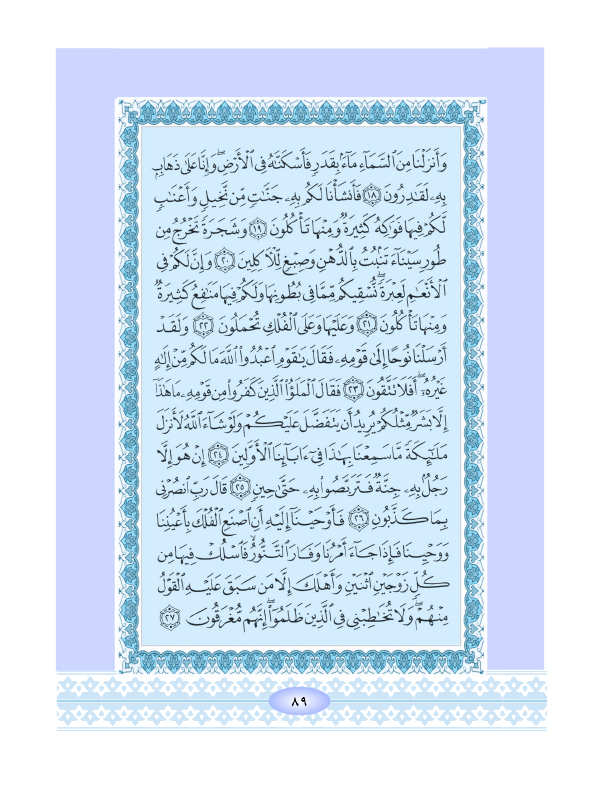 وَأَنزَلْنَا مِنَ ٱلسَّمَآءِ مَآءًۢ بِقَدَرٍ فَأَسْكَنَّٰهُ فِى ٱلْأَرْضِ ۖ وَإِنَّا عَلَىٰ ذَهَابٍۭ
بِهِۦ لَقَٰدِرُونَ ١٨ فَأَنشَأْنَا لَكُم بِهِۦ جَنَّٰتٍ مِّن نَّخِيلٍ وَأَعْنَٰبٍ
لَّكُمْ فِيهَا فَوَٰكِهُ كَثِيرَةٌ وَمِنْهَا تَأْكُلُونَ ١٩ وَشَجَرَةً تَخْرُجُ مِن
طُورِ سَيْنَآءَ تَنۢبُتُ بِٱلدُّهْنِ وَصِبْغٍ لِّلْءَاكِلِينَ ٢٠ وَإِنَّ لَكُمْ فِى
ٱلْأَنْعَٰمِ لَعِبْرَةً ۖ نُّسْقِيكُم مِّمَّا فِى بُطُونِهَا وَلَكُمْ فِيهَا مَنَٰفِعُ كَثِيرَةٌ
وَمِنْهَا تَأْكُلُونَ ٢١ وَعَلَيْهَا وَعَلَى ٱلْفُلْكِ تُحْمَلُونَ ٢٢ وَلَقَدْ
أَرْسَلْنَا نُوحًا إِلَىٰ قَوْمِهِۦ فَقَالَ يَٰقَوْمِ ٱعْبُدُوا۟ ٱللَّهَ مَا لَكُم مِّنْ إِلَٰهٍ
غَيْرُهُۥٓ ۖ أَفَلَا تَتَّقُونَ ٢٣ فَقَالَ ٱلْمَلَؤُا۟ ٱلَّذِينَ كَفَرُوا۟ مِن قَوْمِهِۦ مَا هَٰذَآ
إِلَّا بَشَرٌ مِّثْلُكُمْ يُرِيدُ أَن يَتَفَضَّلَ عَلَيْكُمْ وَلَوْ شَآءَ ٱللَّهُ لَأَنزَلَ
مَلَٰٓئِكَةً مَّا سَمِعْنَا بِهَٰذَا فِىٓ ءَابَآئِنَا ٱلْأَوَّلِينَ ٢٤ إِنْ هُوَ إِلَّا
رَجُلٌۢ بِهِۦ جِنَّةٌ فَتَرَبَّصُوا۟ بِهِۦ حَتَّىٰ حِينٍ ٢٥ قَالَ رَبِّ ٱنصُرْنِى
بِمَا كَذَّبُونِ ٢٦ فَأَوْحَيْنَآ إِلَيْهِ أَنِ ٱصْنَعِ ٱلْفُلْكَ بِأَعْيُنِنَا
وَوَحْيِنَا فَإِذَا جَآءَ أَمْرُنَا وَفَارَ ٱلتَّنُّورُ ۙ فَٱسْلُكْ فِيهَا مِن
كُلٍّ زَوْجَيْنِ ٱثْنَيْنِ وَأَهْلَكَ إِلَّا مَن سَبَقَ عَلَيْهِ ٱلْقَوْلُ
مِنْهُمْ ۖ وَلَا تُخَٰطِبْنِى فِى ٱلَّذِينَ ظَلَمُوٓا۟ ۖ إِنَّهُم مُّغْرَقُونَ ٢٧
٨٩